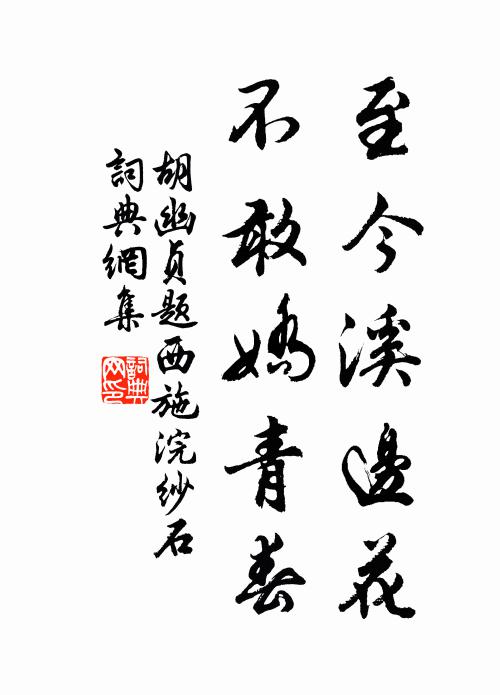 至今溪邊花
不敢嬌青春
胡幽貞題西施浣紗石
詞典網集
詞典網印